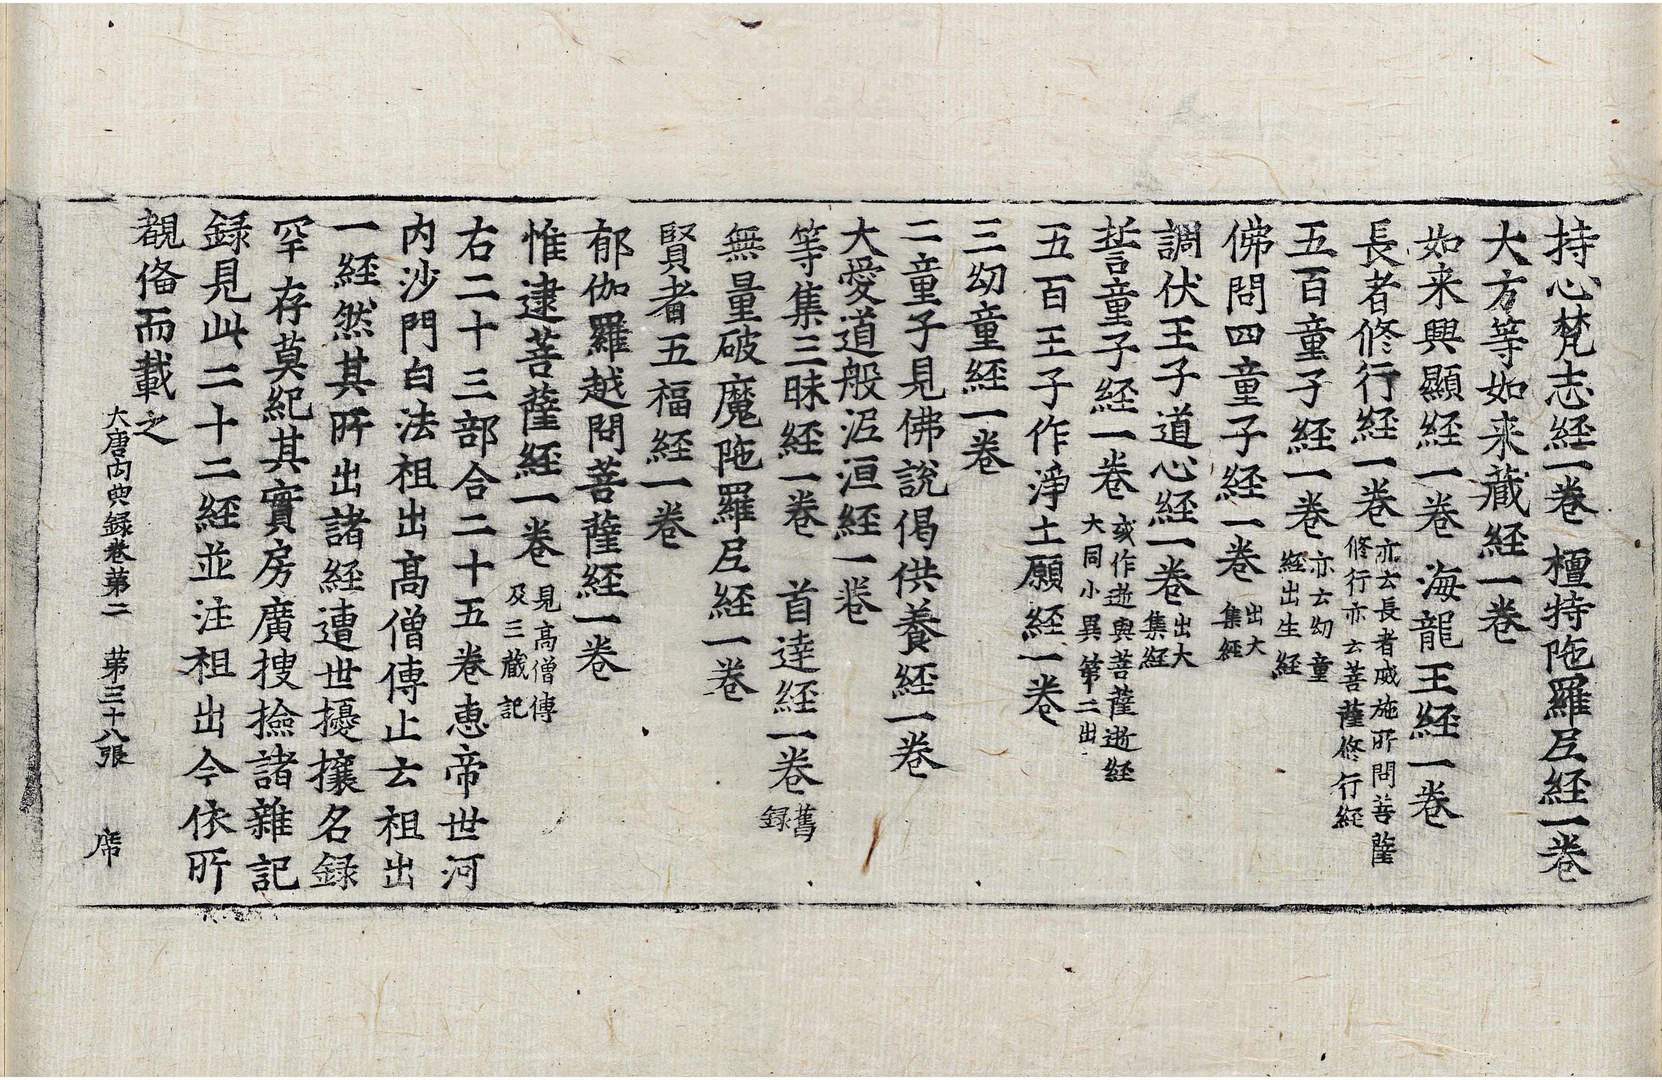 持心梵志經一卷 檀特陁羅尼經一卷
大方等如来藏經一卷
如来興顯經一卷 海龍王經一卷
長者修行經一卷 亦云長者威施所問菩薩
修行亦云菩薩修行經
五百童子經一卷 亦云幼童
經出生經
佛問四童子經一卷 出大
集經
調伏王子道心經一卷 出大
集經
誓童子經一卷 或作逝與菩薩逝經
大同小異第二出
五百王子作淨土願經一卷
三幼童經一卷
二童子見佛說偈供養經一卷
大愛道般泥洹經一卷
等集三昧經一卷 首達經一卷 舊
録
無量破魔陁羅尼經一卷
賢者五福經一卷
郁伽羅越問菩薩經一卷
惟逮菩薩經一卷 見高僧傳
及三藏記
右二十三部合二十五卷惠帝世河
内沙門白法祖出高僧傳止云祖出
一經然其所出諸經遭世擾攘名録
罕存莫紀其實房廣搜撿諸雜記
録見此二十二經並注祖出今依所
覩俻而載之
大唐内典録卷第二 第三十八張 席